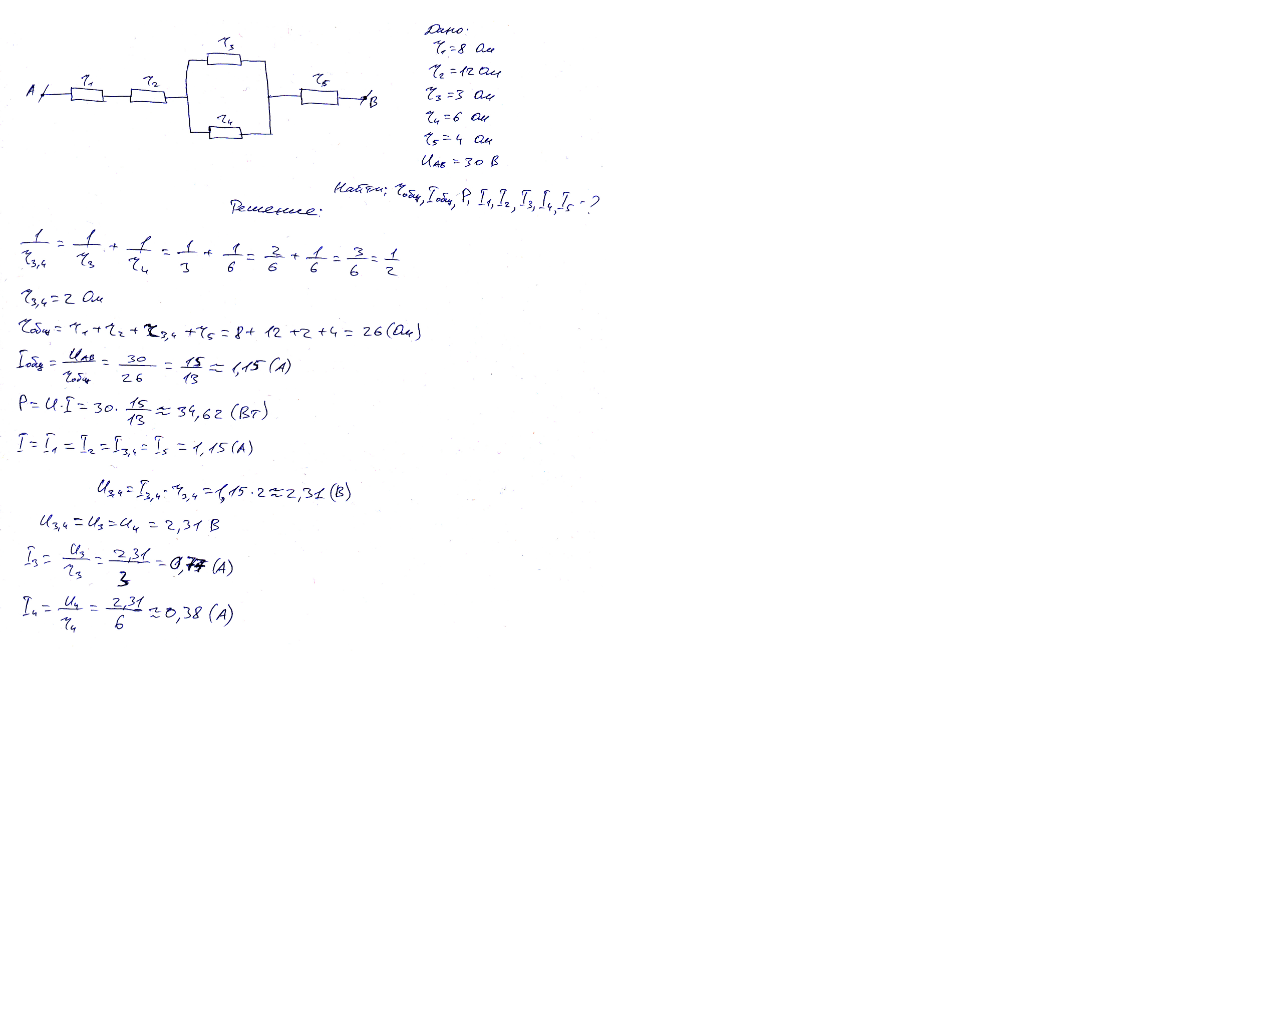 r₃
A r₁ r₂ r₅ B
r₄
Дано:
r₁=8 Ом
r₂=12 Ом
r₃=3 Ом
r₄=6 Ом
r₅=4 Ом
U_AB=30 В
Найти: r_общ, I_общ, P, I₁, I₂, I₃, I₄, I₅-?
Решение:
1/r₃,₄ = 1/r₃ + 1/r₄ = 1/3 + 1/6 = 2/6 + 1/6 = 3/6 = 1/2
r₃,₄=2 Ом
r_общ=r₁+r₂+r₃,₄+r₅=8+12+2+4=26(Ом)
I_общ = U_AB/r_общ = 30/26 = 15/13 ≈ 1,15(А)
P=U·I=30·15/13≈34,62(Вт)
I=I₁=I₂=I₃,₄=I₅=1,15(А)
U₃,₄=I₃,₄·r₃,₄=1,15·2≈2,31(В)
U₃,₄=U₃=U₄=2,31 В
I₃ = U₃/r₃ = 2,31/3 = 0,77(А)
I₄ = U₄/r₄ = 2,31/6 ≈ 0,38(А)